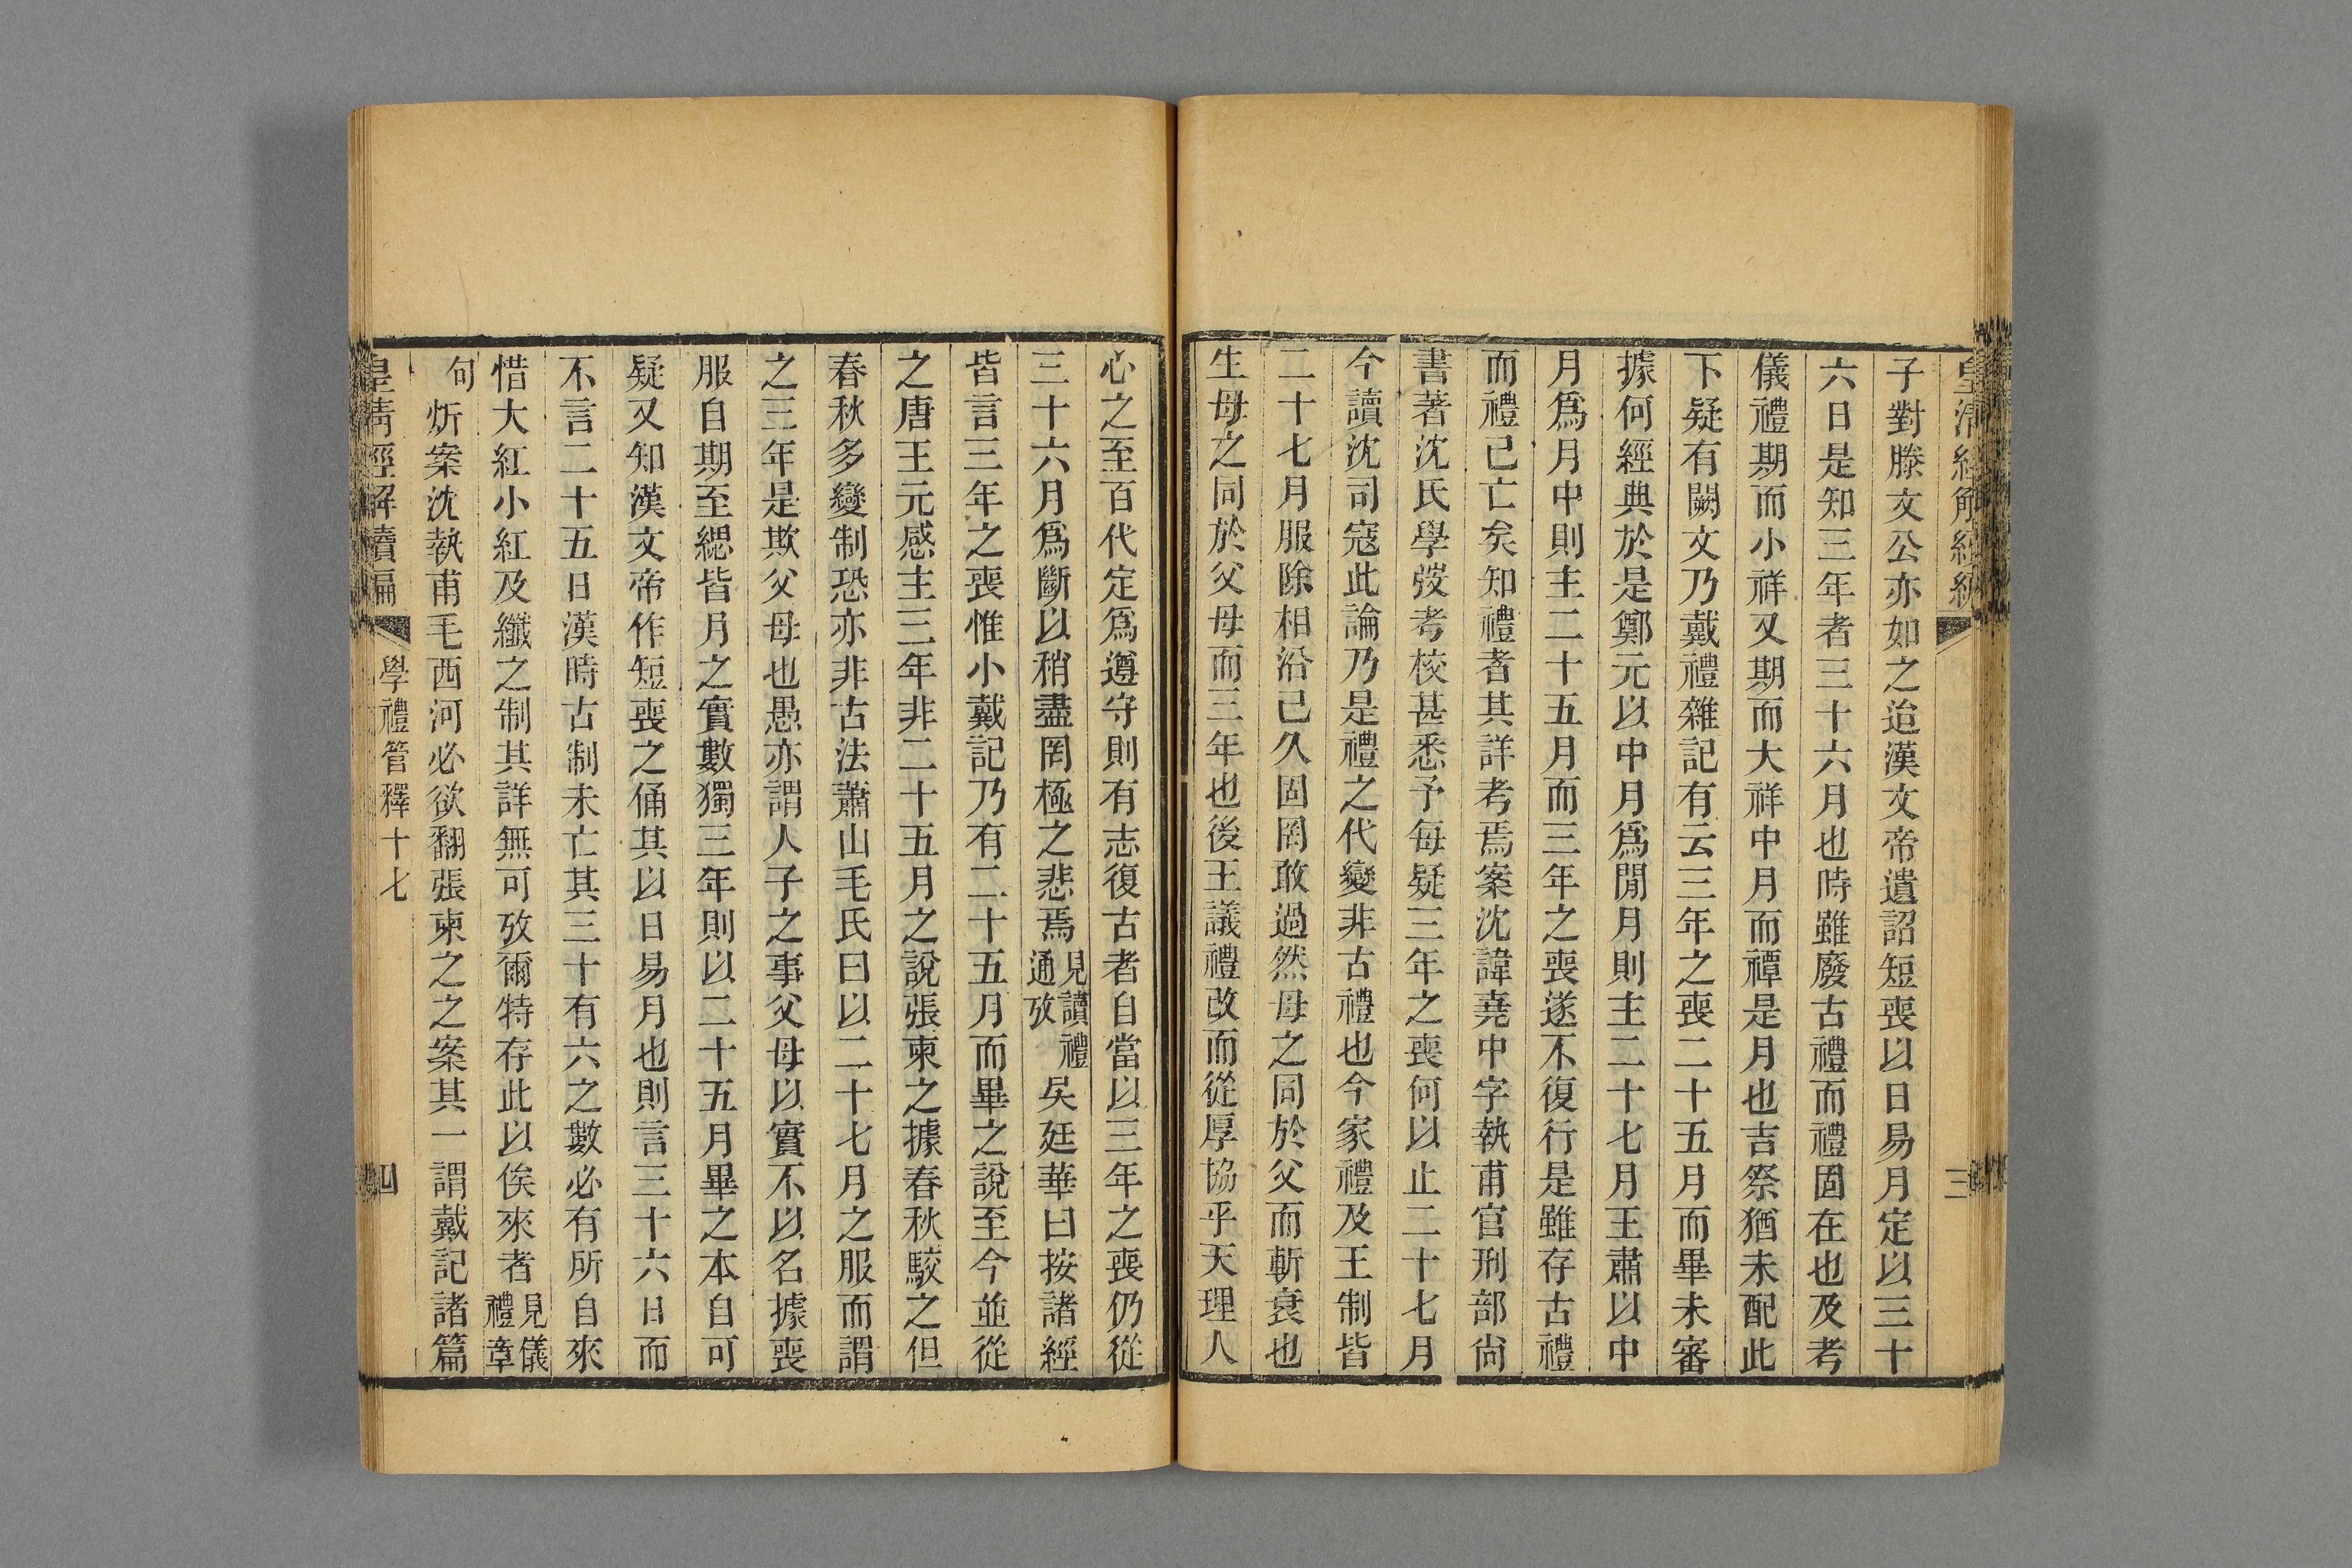 皇清經解續編
三
子對滕文公亦如之迨漢文帝遺詔短喪以日易月定以三十
六日是知三年者三十六月也時雖廢古禮而禮固在也及考
儀禮期而小祥又期而大祥中月而禫是月也吉祭猶未配此
下疑有闕文乃戴禮雜記有云三年之喪二十五月而畢未審
據何經典於是鄭元以中月爲閒月則主二十七月王肅以中
月爲月中則主二十五月而三年之喪遂不復行是雖存古禮
而禮已亡矣知禮者其詳考焉案沈諱堯中字執甫官刑部尙
書著沈氏學弢考校甚悉予每疑三年之喪何以止二十七月
今讀沈司寇此論乃是禮之代變非古禮也今家禮及王制皆
二十七月服除相沿已久固罔敢過然母之同於父而斬衰也
生母之同於父母而三年也後王議禮改而從厚協乎天理人
心之至百代定爲遵守則有志復古者自當以三年之喪仍從
三十六月爲斷以稍盡罔極之悲焉見讀禮通攷吳廷華曰按諸經
皆言三年之喪惟小戴記乃有二十五月而畢之說至今並從
之唐王元感主三年非二十五月之說張柬之據春秋駮之但
春秋多變制恐亦非古法蕭山毛氏曰以二十七月之服而謂
之三年是欺父母也愚亦謂人子之事父母以實不以名據喪
服自期至緦皆月之實數獨三年則以二十五月畢之本自可
疑又知漢文帝作短喪之俑其以日易月也則言三十六日而
不言二十五日漢時古制未亡其三十有六之數必有所自來
惜大紅小紅及纖之制其詳無可攷爾特存此以俟來者見儀禮章
句炘案沈執甫毛西河必欲翻張柬之之案其一謂戴記諸篇
皇清經解續編
學禮管釋十七
四